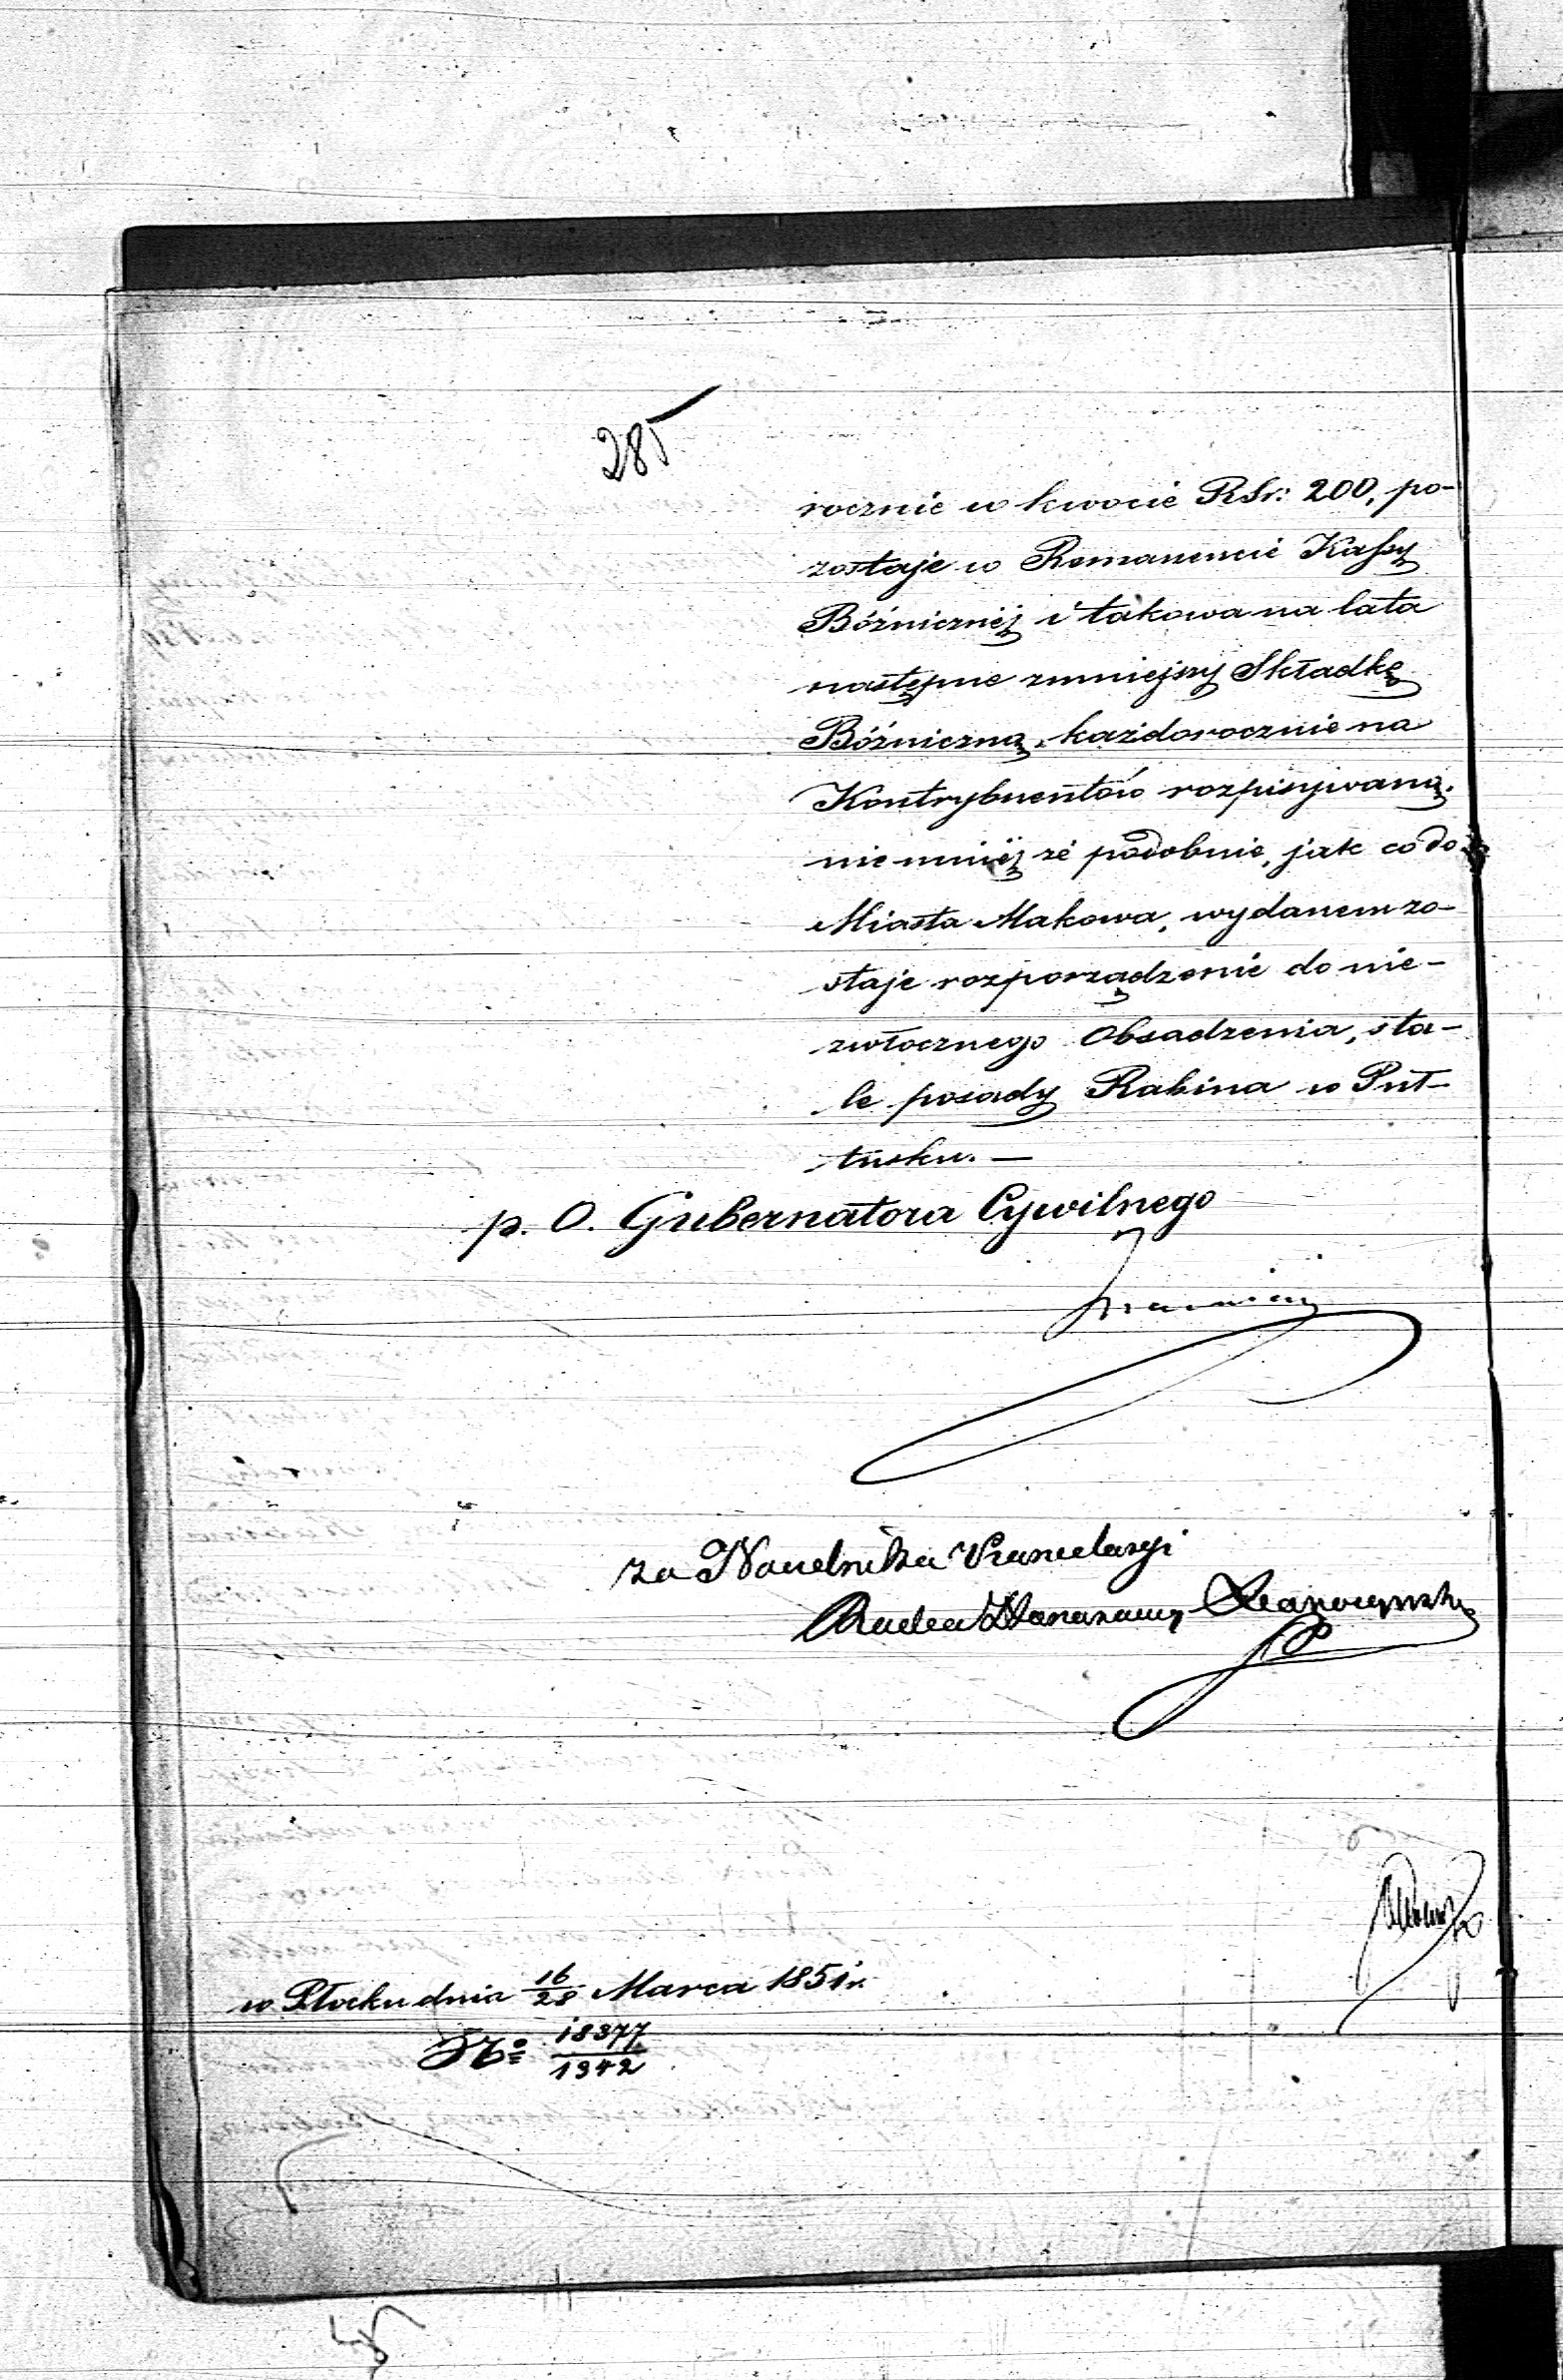 285
rocznie w kwocie RSr: 200, po-
zostaje w Remanencie Kassy
Bóźnicznéj i takowa na lata
następne zmniejszy Składkę
Bóźniczną, każdorocznie na
Kontrybuentów rozpisywaną.
niemniéj że podobnie, jak co do
Miasta Makowa, wydanem zo-
staje rozporządzenie do nie-
zwłocznego Obsadzenia, sta-
le posady Rabina w Puł-
tusku. —
p. O. Gubernatora Cywilnego
za Naczelnika Kancelaryi
Radca
w Płocku dnia 16/28 Marca 1851 r.
No 18377/1342